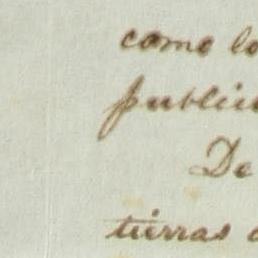 como lo
public
De
tierras